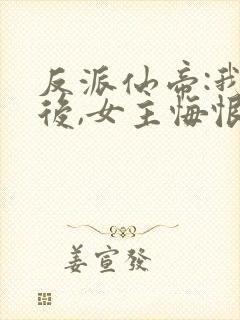 反派仙帝:我
後,女主悔恨
姜宣發